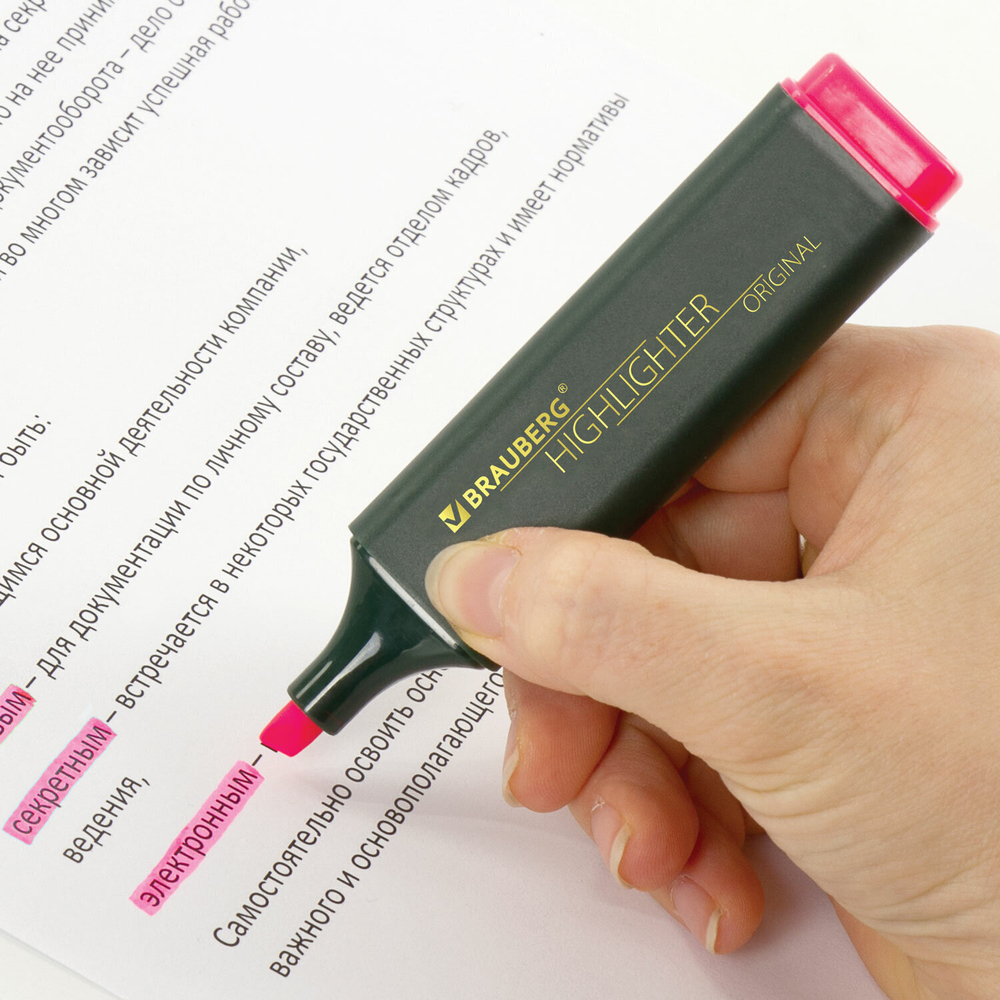 на нее прини
документооборота – дело с
во многом зависит успешная рабо
быть:
щимся основной деятельности компании,
вым – для документации по личному составу, ведется отделом кадров,
секретным – встречается в некоторых государственных структурах и имеет нормативы
ведения,
электронным –
Самостоятельно освоить осн
важного и основополагающего
BRAUBERG®
HIGHLIGHTER
ORIGINAL